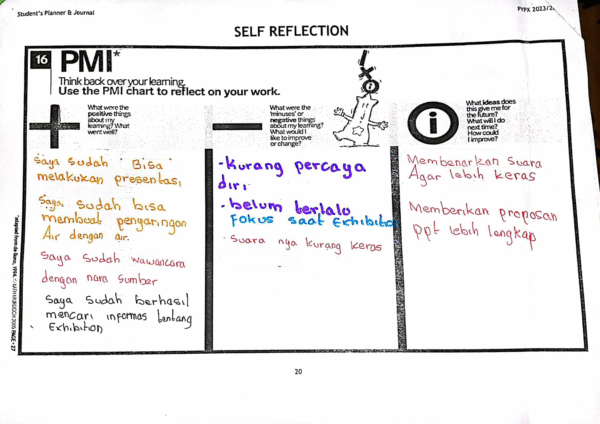 Student's Planner & Journal
PYPX 2023/2
SELF REFLECTION
16 PMI*
Think back over your learning.
Use the PMI chart to reflect on your work.
What were the
positive things
about my
learning? What
went well?
What were the
'minuses' or
negative things
about my learning?
What would I
like to improve
or change?
What ideas does
this give me for
the future?
What will I do
next time?
How could
I improve?
Saya Sudah Bisa
melakukan presentasi
Saya Sudah bisa
membuat penyaringan
Air dengan air.
Saya Sudah wawancara
dengan nara Sumber
Saya Sudah berhasil
mencari informas tentang
Exhibition
- Kurang percaya
diri
- belum terlalu
Fokus saat Exhibition
- Suara nya kurang keras
Membenarkan Suara
Agar lebih keras
Memberikan proposan
ppt lebih lengkap
20